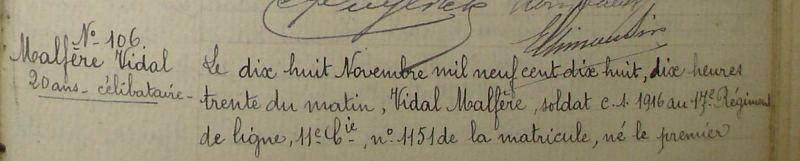 N° 106.
Malfère Vidal
20 ans - célibataire -
Le dix huit Novembre mil neuf cent dix huit, dix heures
trente du matin, Vidal Malfère, soldat c. s. 1916 au 17e Régiment
de ligne, 11e Cie, n° 1151 de la matricule, né le premier